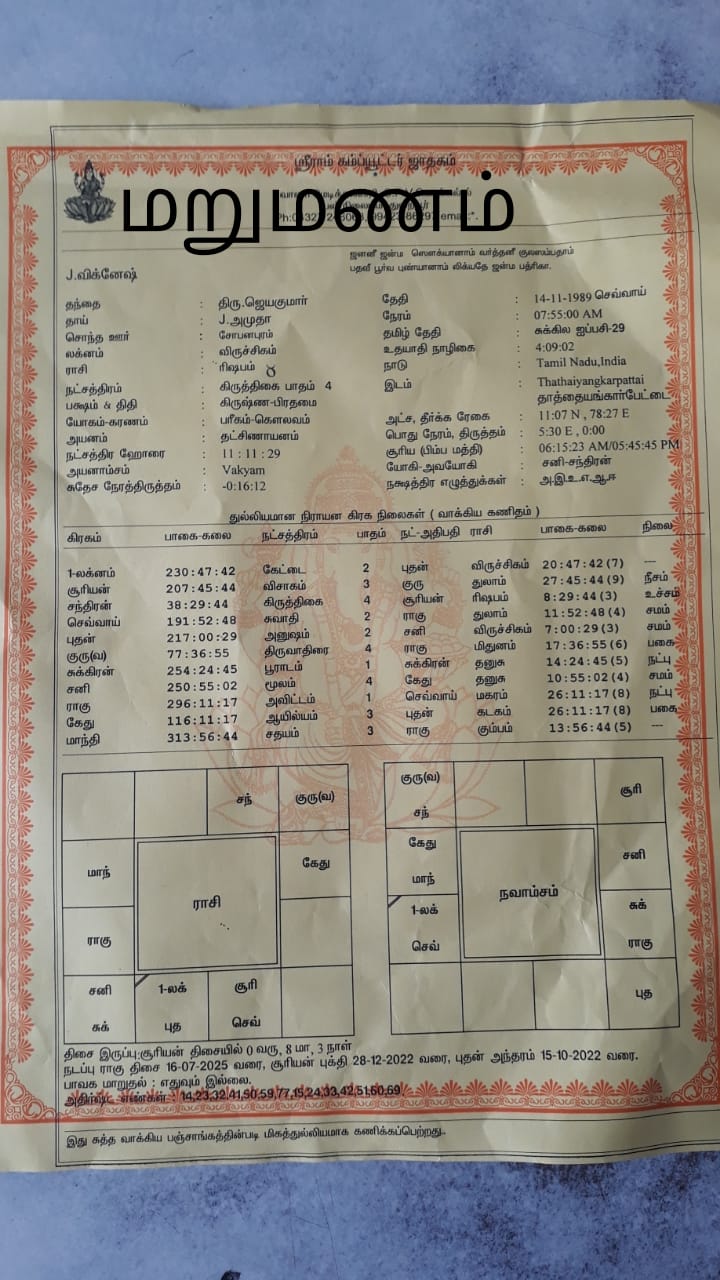 ஸ்ரீராம் கம்ப்யூட்டர் ஜாதகம்
மறுமணம்
ஜனனீ ஜன்ம ஸௌக்யானாம் வர்த்தனீ குலஸம்பதாம்
பதவீ பூர்வ புண்யானாம் லிக்யதே ஜன்ம பத்ரிகா.
J.விக்னேஷ்
தந்தை : திரு.ஜெயகுமார் தேதி : 14-11-1989 செவ்வாய்
தாய் : J.அமுதா நேரம் : 07:55:00 AM
சொந்த ஊர் : சோபனபுரம் தமிழ் தேதி : சுக்கில ஐப்பசி-29
லக்னம் : விருச்சிகம் உதயாதி நாழிகை : 4:09:02
ராசி : ரிஷபம் ♉ நாடு : Tamil Nadu,India
நட்சத்திரம் : கிருத்திகை பாதம் 4 இடம் : Thathaiyangkarpattai
தாத்தையங்கார்பேட்டை
பக்ஷம் & திதி : கிருஷ்ண-பிரதமை
யோகம்-கரணம் : பரீகம்-கௌலவம் அட்ச, தீர்க்க ரேகை : 11:07 N , 78:27 E
அயனம் : தட்சிணாயனம் பொது நேரம், திருத்தம் : 5:30 E , 0:00
நட்சத்திர ஹோரை : 11 : 11 : 29 சூரிய (பிம்ப மத்தி) : 06:15:23 AM/05:45:45 PM
அயனாம்சம் : Vakyam யோகி-அவயோகி : சனி-சந்திரன்
சுதேச நேரத்திருத்தம் : -0:16:12 நக்ஷத்திர எழுத்துக்கள் : அ.இ.உ.எ.ஆ.ஈ
துல்லியமான நிராயன கிரக நிலைகள் ( வாக்கிய கணிதம் )
கிரகம் பாகை-கலை நட்சத்திரம் பாதம் நட்-அதிபதி ராசி பாகை-கலை நிலை
1-லக்னம் 230:47:42 கேட்டை 2 புதன் விருச்சிகம் 20:47:42(7) ---
சூரியன் 207:45:44 விசாகம் 3 குரு துலாம் 27:45:44(9) நீசம்
சந்திரன் 38:29:44 கிருத்திகை 4 சூரியன் ரிஷபம் 8:29:44(3) உச்சம்
செவ்வாய் 191:52:48 சுவாதி 2 ராகு துலாம் 11:52:48(4) சமம்
புதன் 217:00:29 அனுஷம் 2 சனி விருச்சிகம் 7:00:29(3) சமம்
குரு(வ) 77:36:55 திருவாதிரை 4 ராகு மிதுனம் 17:36:55(6) பகை
சுக்கிரன் 254:24:45 பூராடம் 1 சுக்கிரன் தனுசு 14:24:45(5) நட்பு
சனி 250:55:02 மூலம் 4 கேது தனுசு 10:55:02(4) சமம்
ராகு 296:11:17 அவிட்டம் 1 செவ்வாய் மகரம் 26:11:17(8) நட்பு
கேது 116:11:17 ஆயில்யம் 3 புதன் கடகம் 26:11:17(8) பகை
மாந்தி 313:56:44 சதயம் 3 ராகு கும்பம் 13:56:44(5) ---
சந் குரு(வ)
மாந் ராசி கேது
ராகு
சனி 1-லக் சூரி
சுக் புத செவ்
குரு(வ) சூரி
சந்
கேது சனி
மாந் நவாம்சம்
1-லக் சுக்
செவ் ராகு
புத
திசை இருப்பு:சூரியன் திசையில் 0 வரு, 8 மா, 3 நாள்
நடப்பு ராகு திசை 16-07-2025 வரை, சூரியன் புக்தி 28-12-2022 வரை, புதன் அந்தரம் 15-10-2022 வரை.
பாவக மாறுதல் : எதுவும் இல்லை.
அதிர்ஷ்ட எண்கள் : 14,23,32,41,50,59,77,15,24,33,42,51,60,69
இது சுத்த வாக்கிய பஞ்சாங்கத்தின்படி மிகத்துல்லியமாக கணிக்கப்பெற்றது..